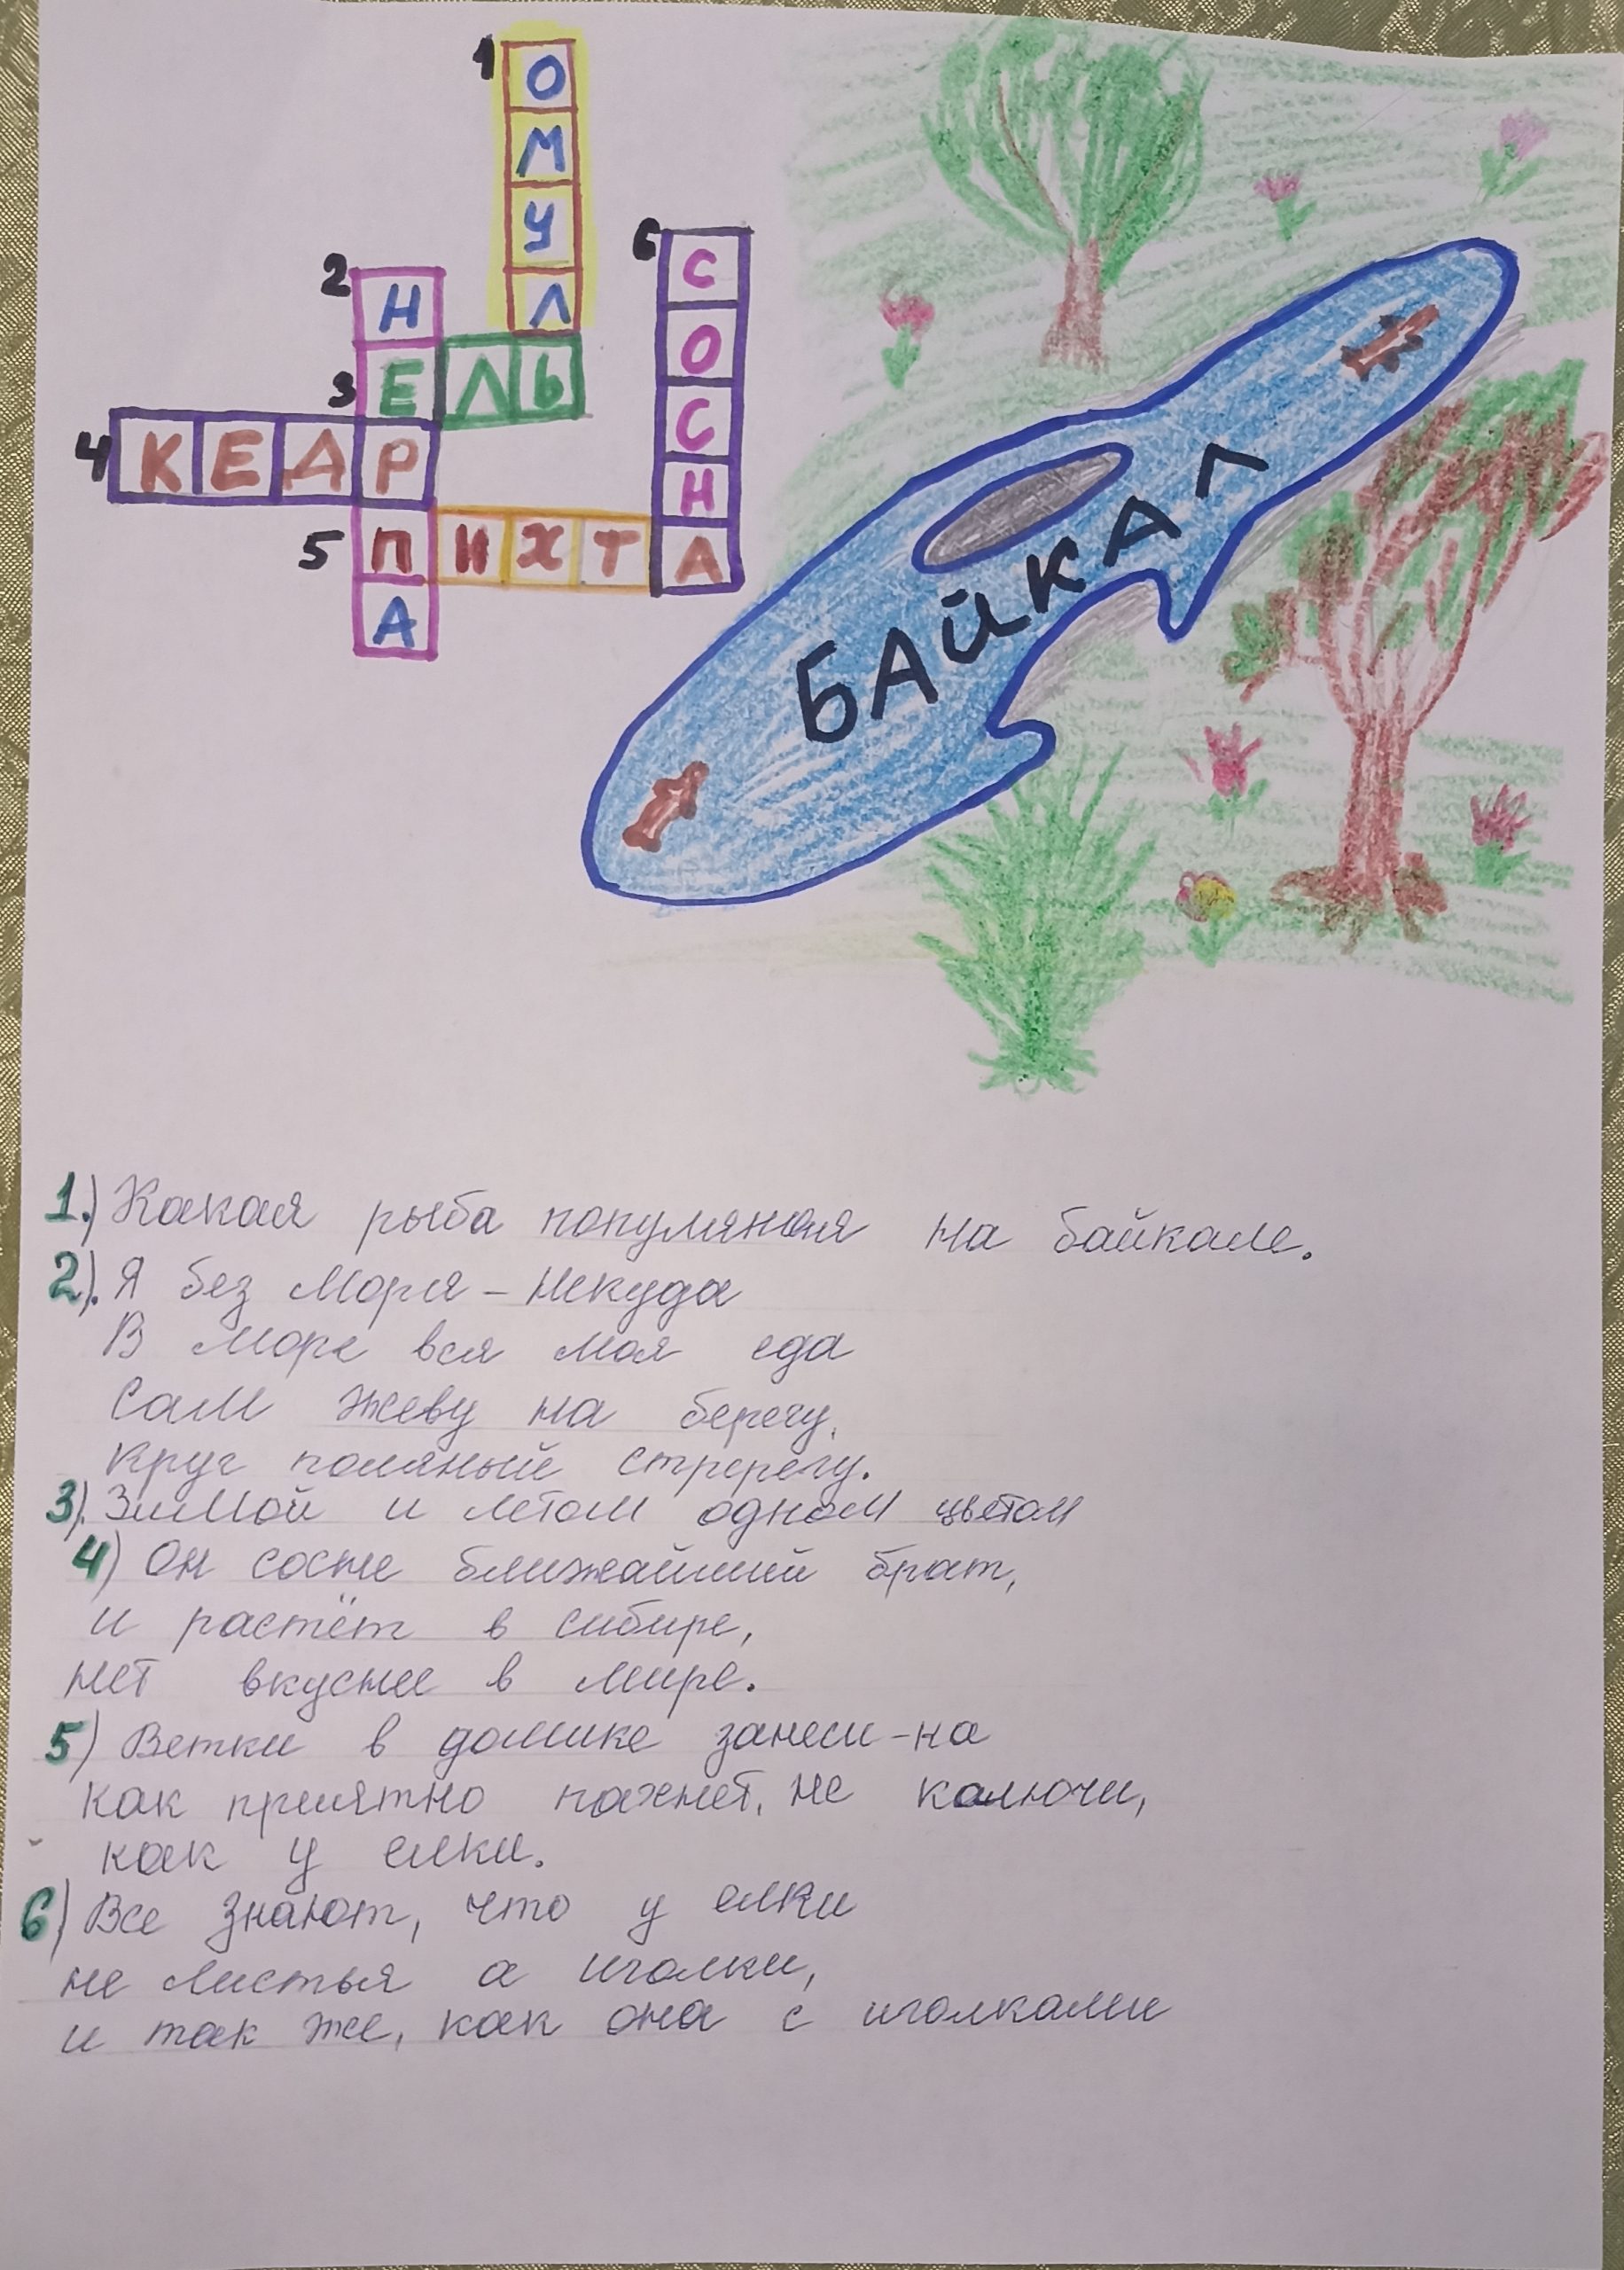 1 ОМУЛЬ
2 НЕРПА
3 ЕЛЬ
4 КЕДР
5 ПИХТА
6 СОСНА
БАЙКАЛ
1.) Какая рыба популяная на байкале.
2). Я без моря – некуда
В море вся моя еда
Сам жеву на берегу,
круг поляный стререгу.
3). Зимой и летом одном цветом
4) Он сосне ближайший брат,
и растёт в сибире,
нет вкуснее в мире.
5) Ветки в домике занеси-на
как приятно пахнет, не калючи,
как у елки.
6) Все знают, что у елки
не листья а иголки,
и так же, как она с иголками